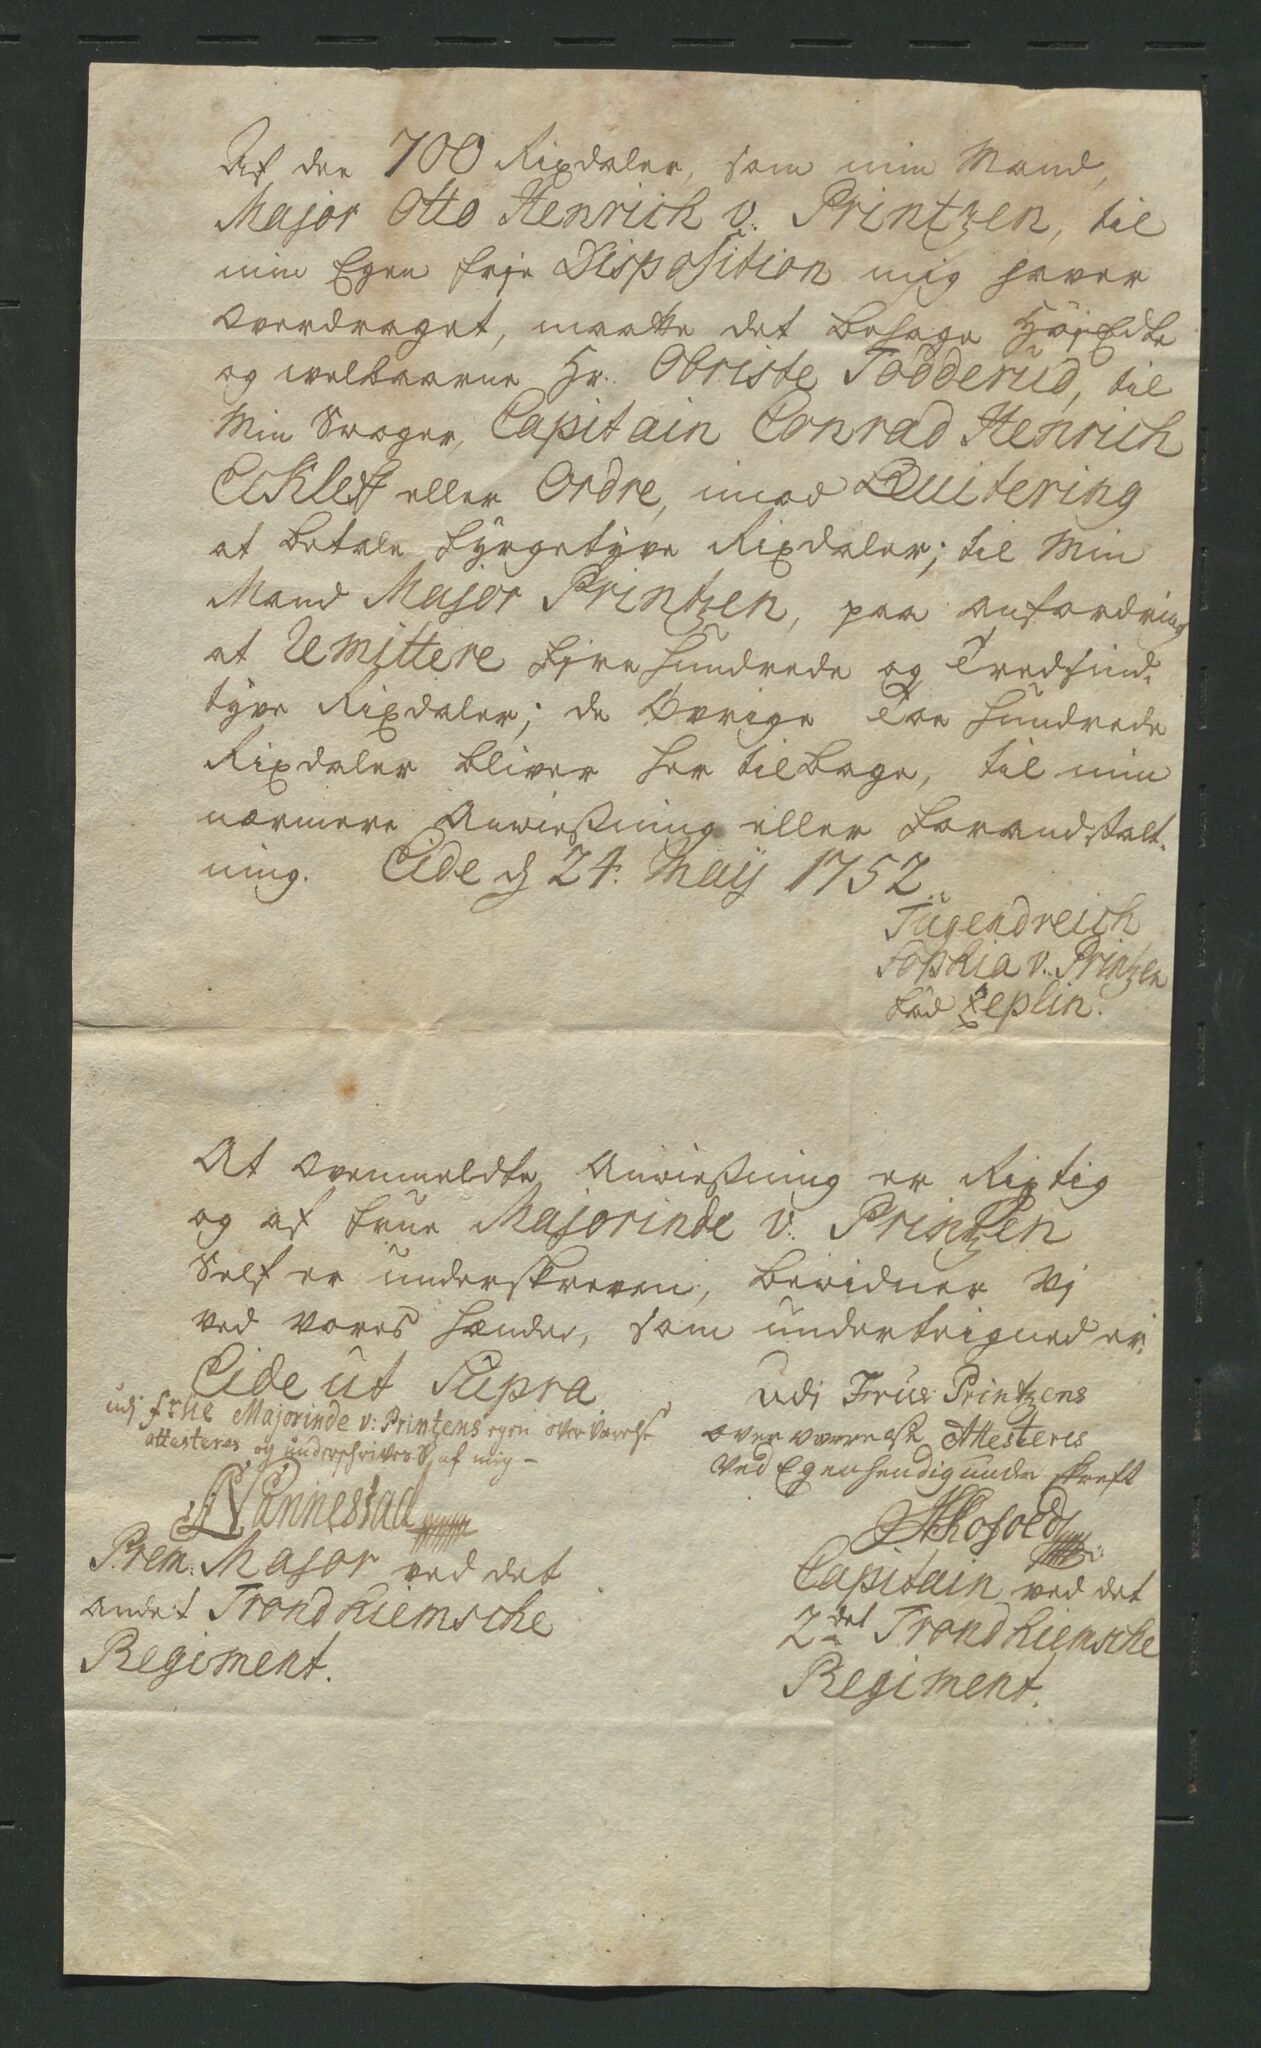 Af de 700 Rixdaler, som min Mand,
Major Otto Henrich v: Printzen, til
min Egen frje Disposition mig haver
Overdraget, maatte det behage HöyEdle
og velbaarne Hr. Obriste Födderüd, til
Min Svoger, Capitain Conrad Henrich
Eckleff eller Ordre, imod Quitering
at betale fyrgetyve Rixdaler; til Min
Mand Major Printzen, paa anfordring
at Remittere fire Hundrede og Tredsinds
tyve Rixdaler; de Övrige Toe Hundrede
Rixdaler bliver her tilbage, til min
nærmere Anviesning eller foranstalt-
ning. Eide d 24. Maij 1752
Tugendreich
Sophia v. Printzen
föd Zeplin.
At ovenmeldte Anviesning er Rigtig
og af frue Majorinde v: Printzen
Self er underskreven, bevidner Vj
ved vores hænder, som underteigned er.
Eide ut Supra
udj frue Majorinde v: Printzens egen overværelse
attesteres og underschrives af mig –
Nannestad
Prem: Major ved det
andet Trondhiemsche
Regiment.
Udj Frue Printzens
overværelse Attesteres
Ved Egenhendig underskreft
Kofoed
Capitain ved det
2det Trondhiemsche
Regiment.